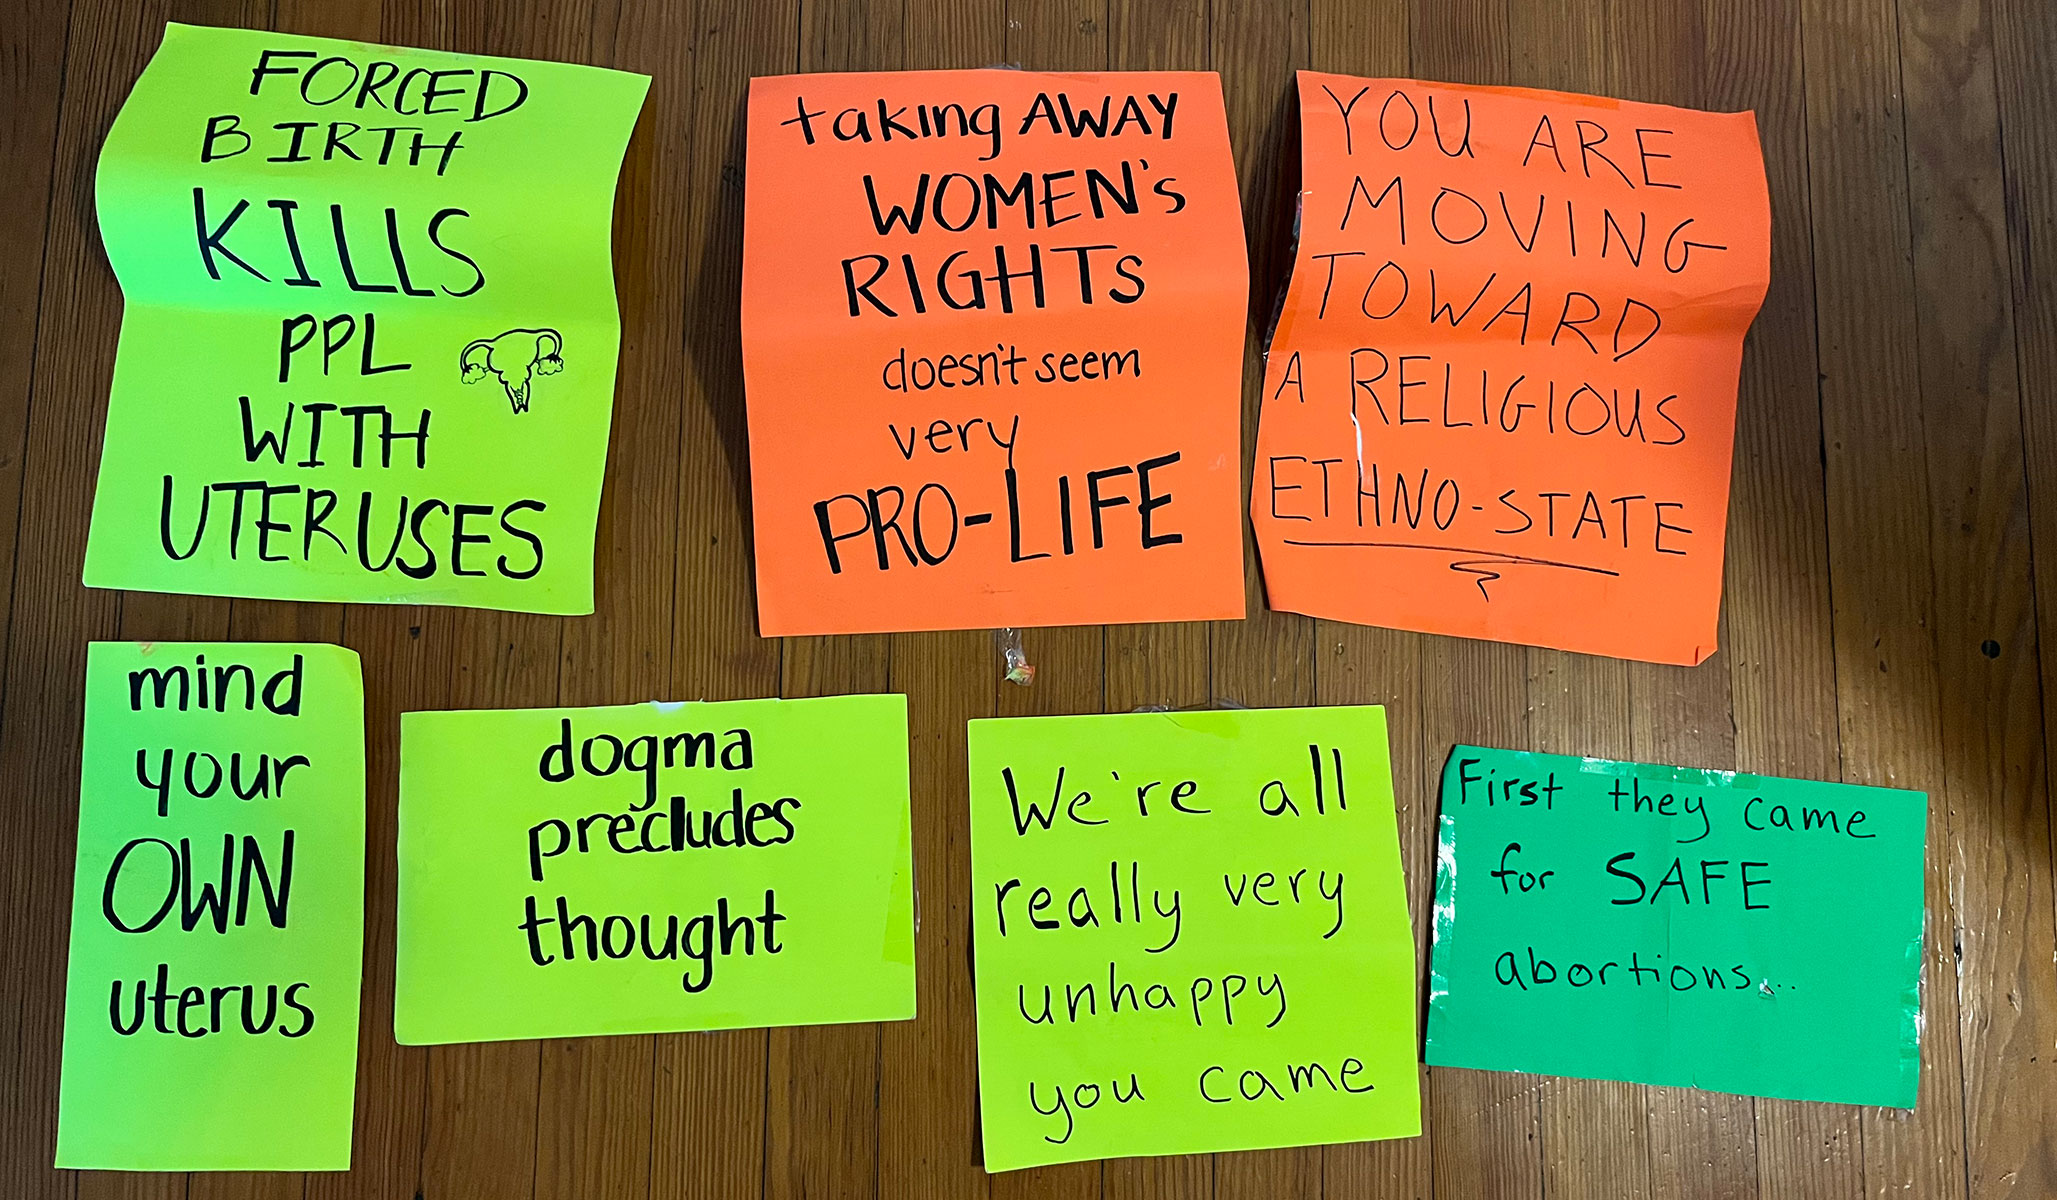 FORCED
BIRTH
KILLS
PPL
WITH
UTERUSES
taking AWAY
WOMEN's
RIGHTs
doesn't seem
very
PRO-LIFE
YOU ARE
MOVING
TOWARD
A RELIGIOUS
ETHNO-STATE
mind
your
OWN
uterus
dogma
precludes
thought
We're all
really very
unhappy
you came
First they came
for SAFE
abortions...